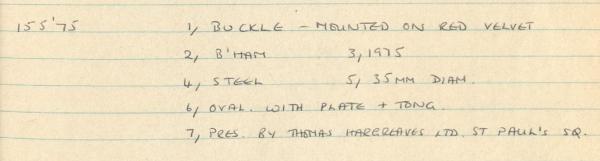 155'75 1, BUCKLE - MOUNTED ON RED VELVET
2, B'HAM 3, 1975
4, STEEL 5, 35MM DIAM.
6, OVAL. WITH PLATE + TONG.
7, PRES. BY THOMAS HARGREAVES LTD. ST PAUL'S SQ.